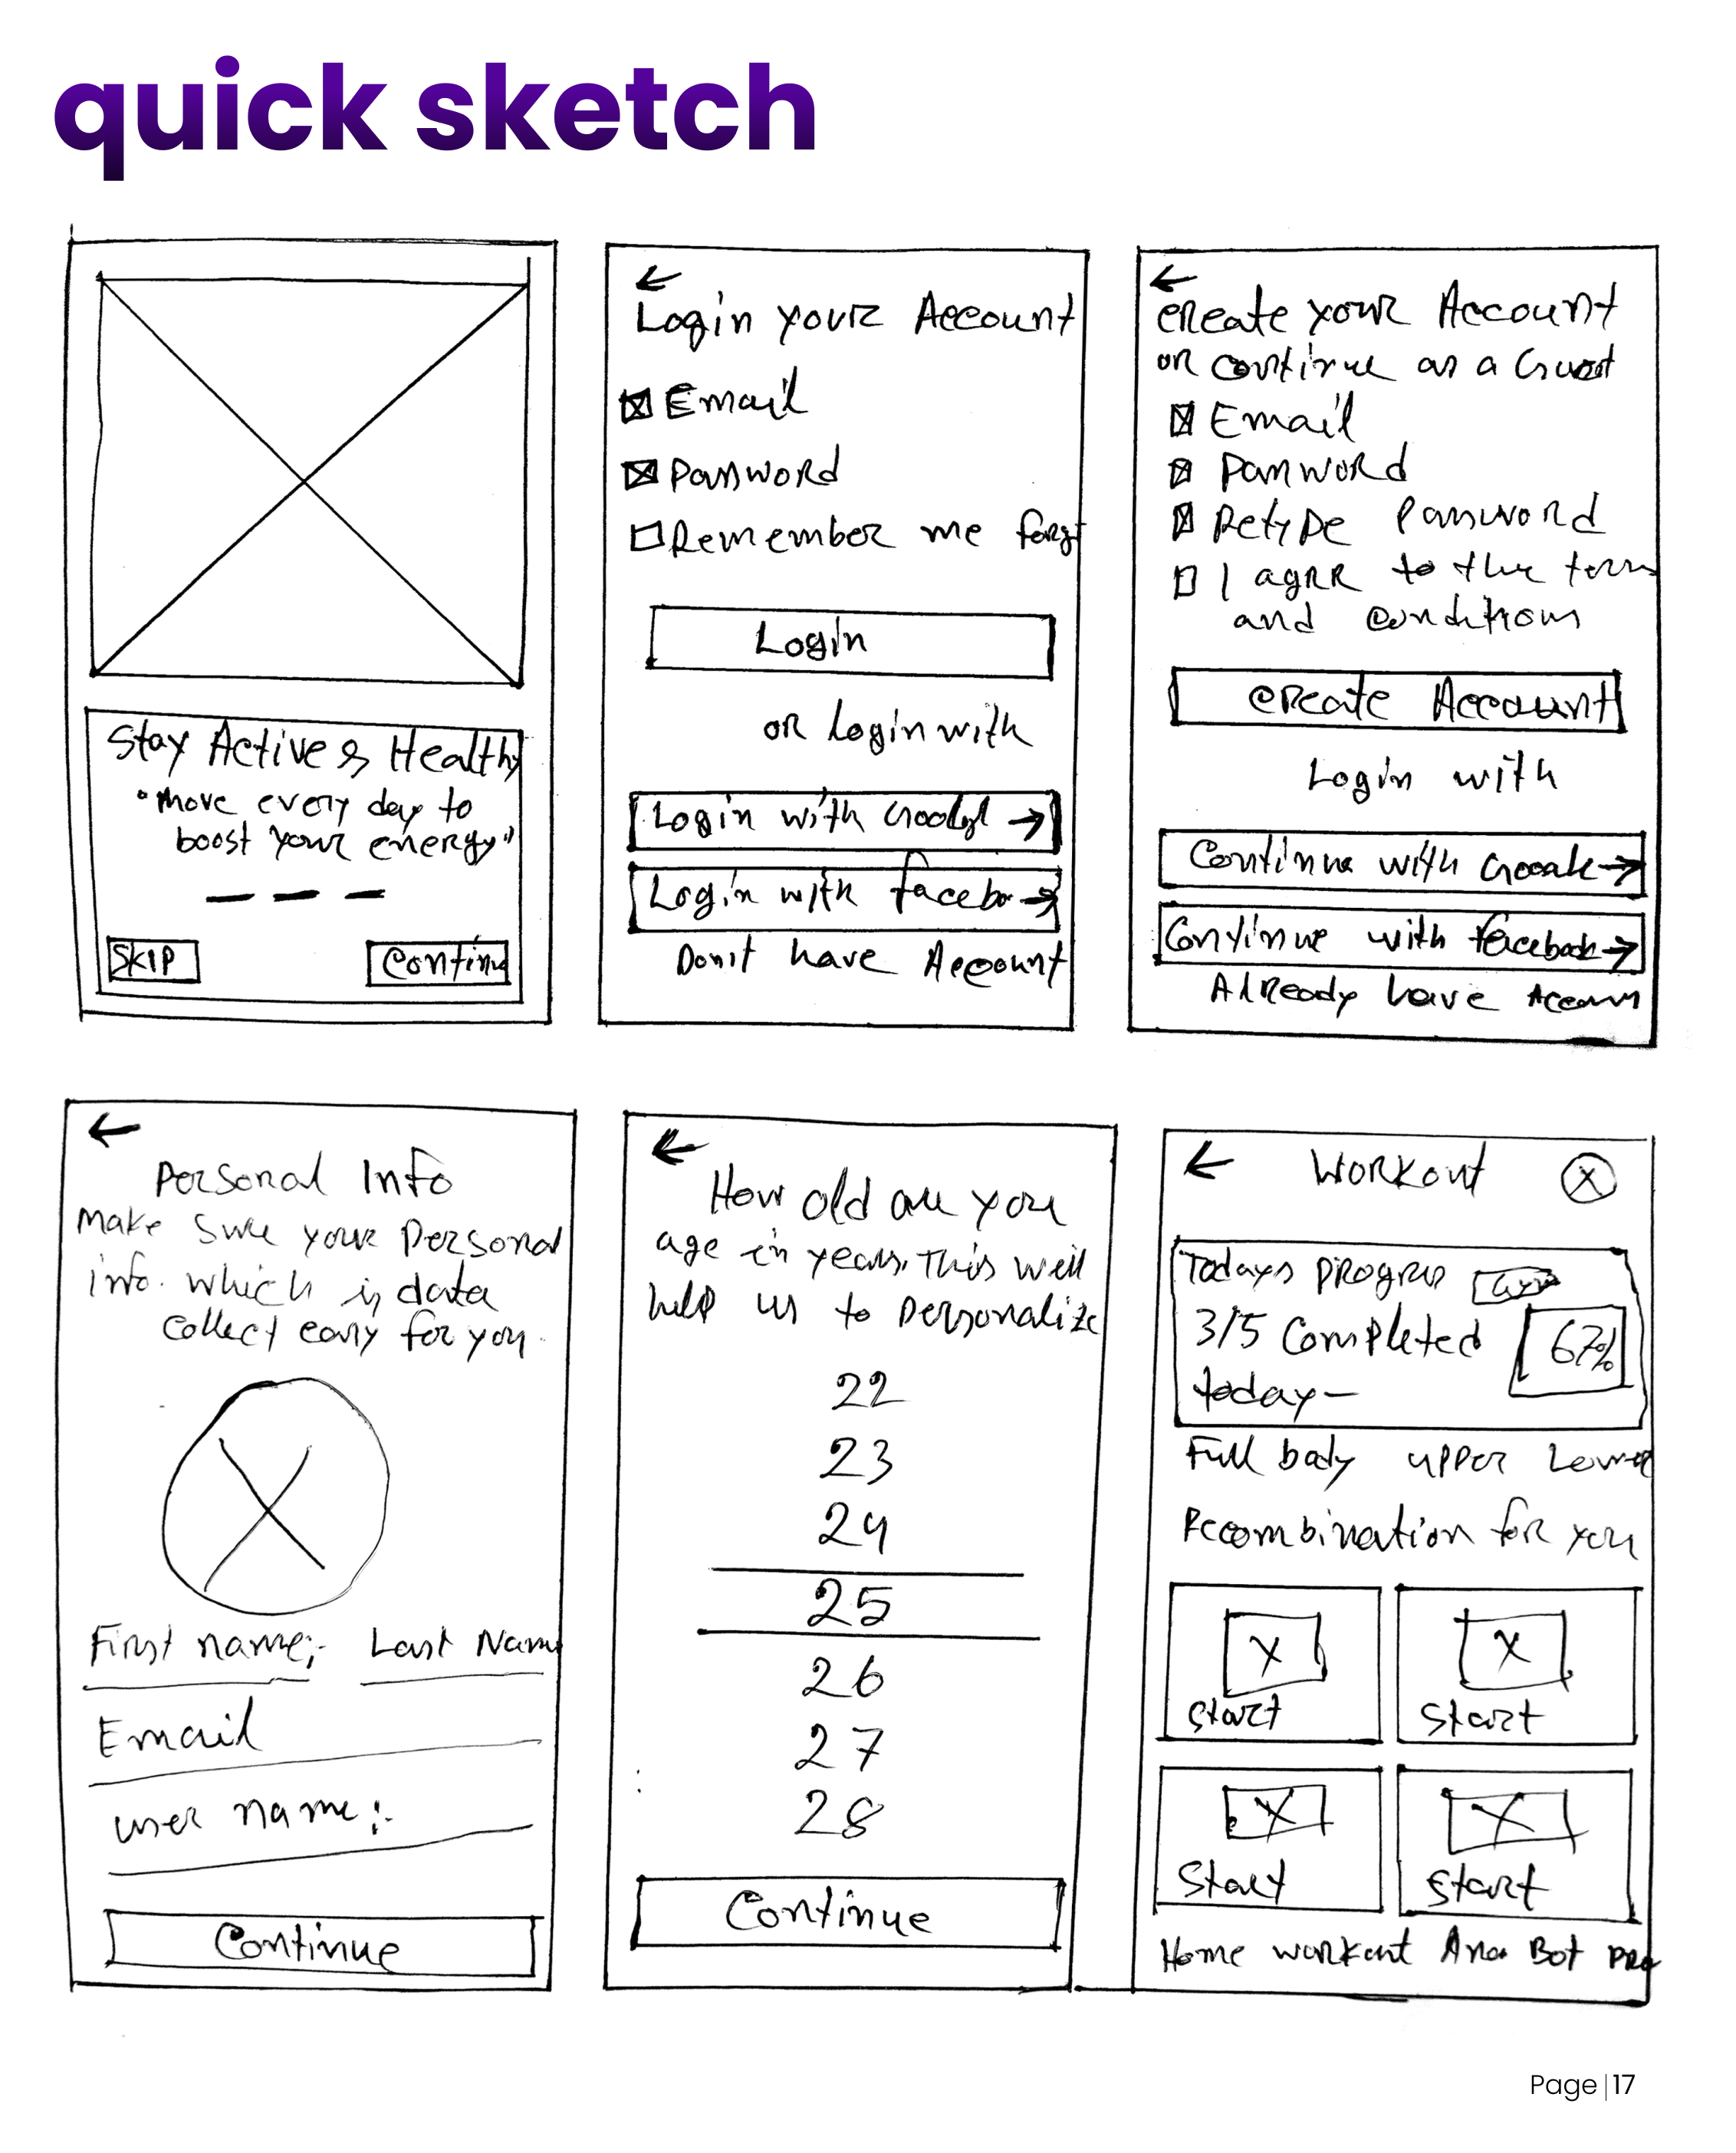 quick sketch
Stay Active & Healthy
"Move every day to
boost your energy"
SKIP
Continu
Login your Account
Email
Password
Remember me forgt
Login
or Login with
Login with
Login with facebo
Don't have Account
create your Account
or continue as a Guest
Email
Password
Retype Password
I agree to the term
and conditions
create Account
Login with
Continue with
Continue with facebook
Already have Accoun
Personal Info
Make sure your personal
info. which is data
collect easy for you.
First name:-
Last Name
Email
user name:-
Continue
How old are you
age in years. This will
help us to personalize
22
23
24
25
26
27
28
Continue
Workout
Todays progress
3/5 Completed
today-
67%
Full body upper Lower
Recombination for you
Start
Start
Start
Start
Home workout Bot Pro
Page | 17